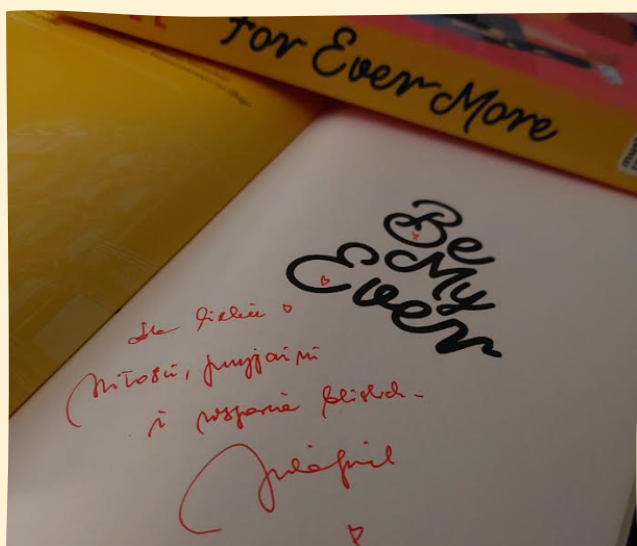 For Ever More
Be
My
Ever
Dla Ciebie
Miłości, przyjaźni
i wsparcia bliskich